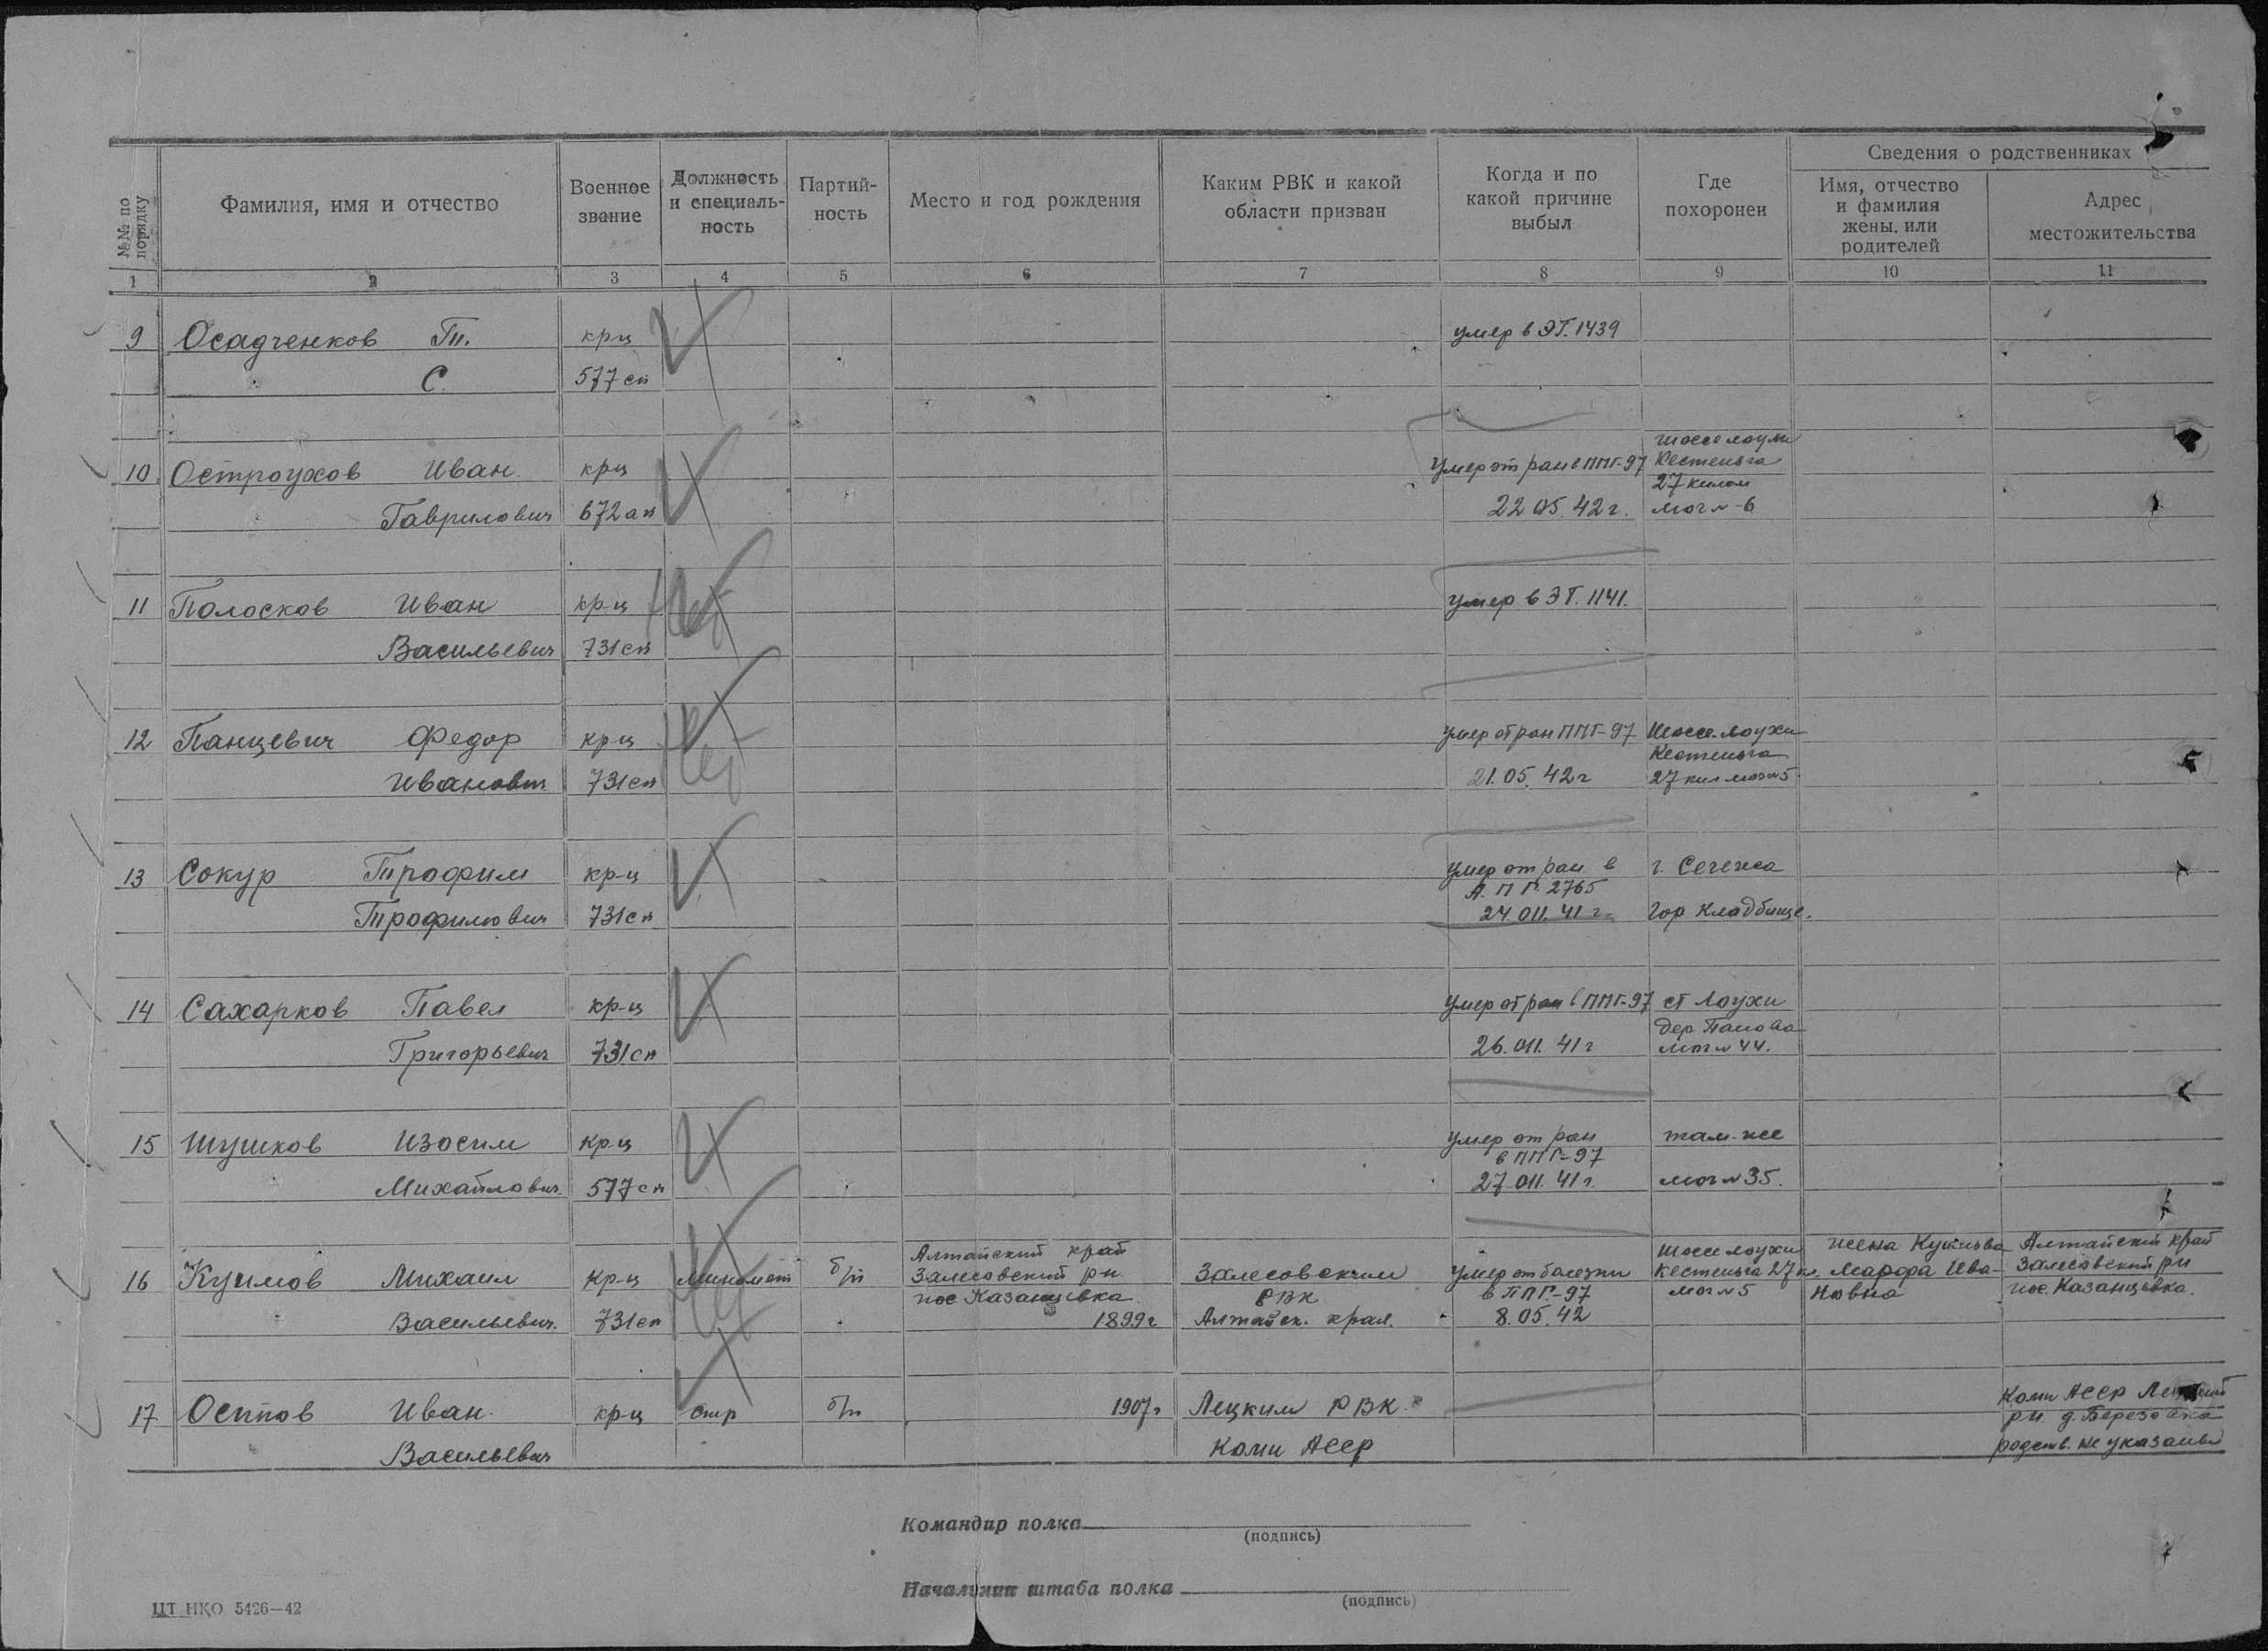 №№ по порядку
Фамилия, имя и отчество
Военное звание
Должность и специаль-ность
Партий-ность
Место и год рождения
Каким РВК и какой области призван
Когда и по какой причине выбыл
Где похоронен
Сведения о родственниках
Имя, отчество и фамилия жены или родителей
Адрес местожительства
1 2 3 4 5 6 7 8 9 10 11
9 Осадченков Т. кр-ц умер в ЭГ. 1439
С. 577 сп
шоссе лоухи
10 Остроухов Иван кр-ц умер от ран в ППГ-97 Кестеньга
27 килом
Гаврилович 672 ап 22.05.42 г. мог № -6
11 Полосков Иван кр-ц умер в ЭГ. 1141.
Васильевич 731 сп
12 Панцевич Федор кр-ц умер от ран ППГ-97 Шоссе лоухи
Кестеньга
Иванович 731 сп 21.05.42 г 27 кил мог № 5
13 Сокур Трофим кр-ц умер от ран в г. Сегежа
А. П Г. 2765
Трофимович 731 сп 24.011.41 г. Гор кладбище.
14 Сахарков Павел кр-ц умер от ран в ППГ-97 ст Лоухи
дер
Григорьевич 731 сп 26.011.41 г мог № 44.
15 Шушков Изосим кр-ц умер от ран там-же
в ППГ-97
Михайлович 577 сп 27.011.41 г. мог № 35.
Алтайский край шоссе лоухи жена Алтайский край
16 Куимов Михаил кр-ц миномет б/п Залесовский р-н Залесовским умер от болезни Кестеньга 27 к. Марфа Ива- Залесовский р-н
пос Казанцевка РВК в ППГ-97 мог № 5 новна пос. Казанцевка.
Васильевич. 731 сп 1899 г Алтайск. края. 8.05.42
Коми АССР
17 Осипов Иван кр-ц стр б/п 1907 г Лецким РВК р-н. д. Березовка
Васильевич Коми АССР родств. не указаны
Командир полка
(подпись)
Начальник штаба полка
(подпись)
ЦТ НКО 5426—42